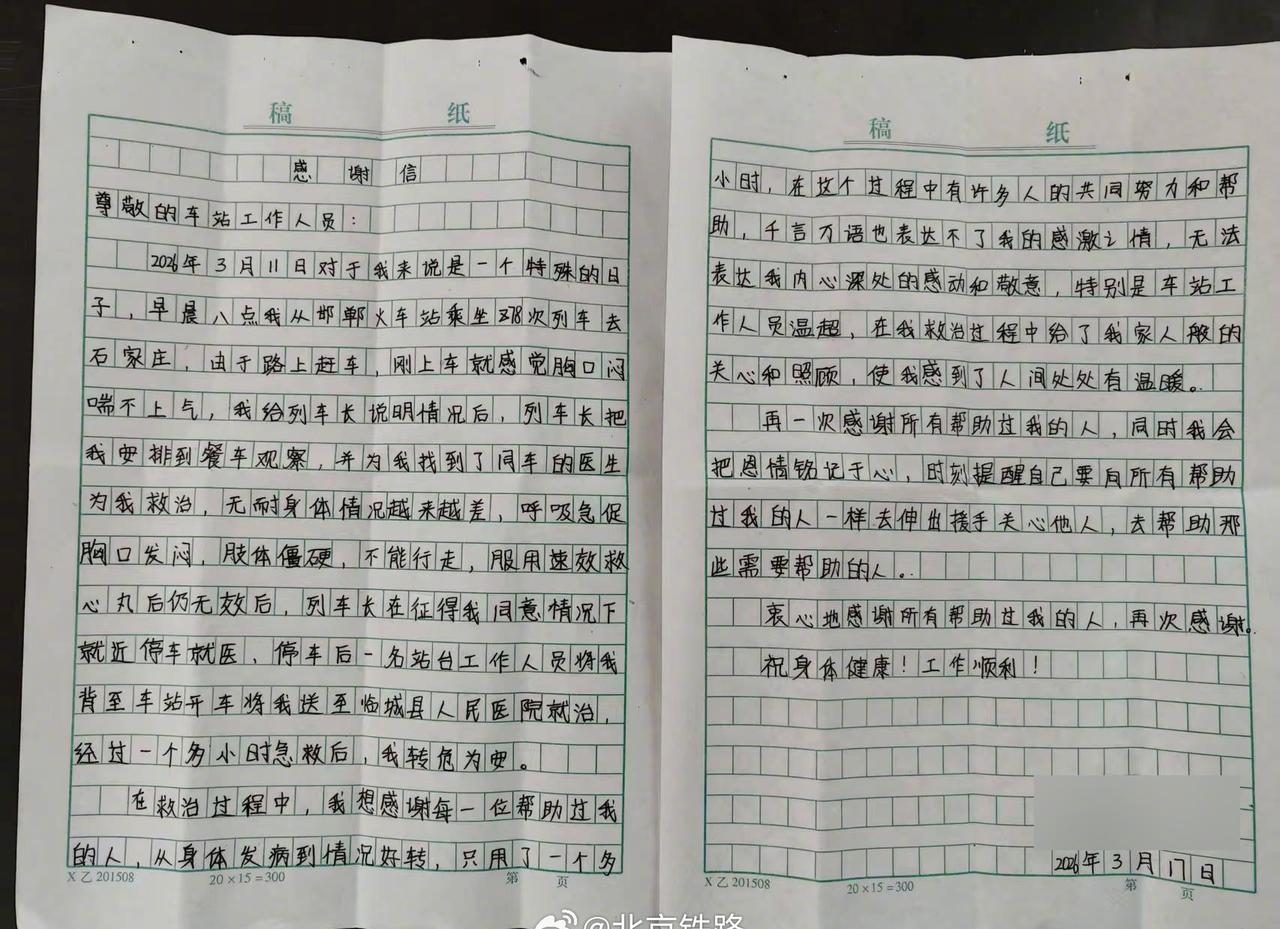 稿 纸
感谢信
尊敬的车站工作人员：
2026年3月11日对于我来说是一个特殊的日
子，早晨八点我从邯郸火车站乘坐Z78次列车去
石家庄，由于路上赶车，刚上车就感觉胸口闷
喘不上气，我给列车长说明情况后，列车长把
我安排到餐车观察，并为我找到了同车的医生
为我救治，无耐身体情况越来越差，呼吸急促
胸口发闷，肢体僵硬，不能行走，服用速效救
心丸后仍无效后，列车长在征得我同意情况下
就近停车就医，停车后一名站台工作人员将我
背至车站开车将我送至临城县人民医院就治，
经过一个多小时急救后，我转危为安。
在救治过程中，我想感谢每一位帮助过我
的人，从身体发病到情况好转，只用了一个多
X乙201508 20×15=300 第 页
稿 纸
小时，在这个过程中有许多人的共同努力和帮
助，千言万语也表达不了我的感激之情，无法
表达我内心深处的感动和敬意，特别是车站工
作人员温超，在我救治过程中给了我家人般的
关心和照顾，使我感到了人间处处有温暖。
再一次感谢所有帮助过我的人，同时我会
把恩情铭记于心，时刻提醒自己要向所有帮助
过我的人一样去伸出援手关心他人，去帮助那
些需要帮助的人。
衷心地感谢所有帮助过我的人，再次感谢。
祝身体健康！工作顺利！
2026年3月17日
X乙201508 20×15=300 第 页
@北京铁路